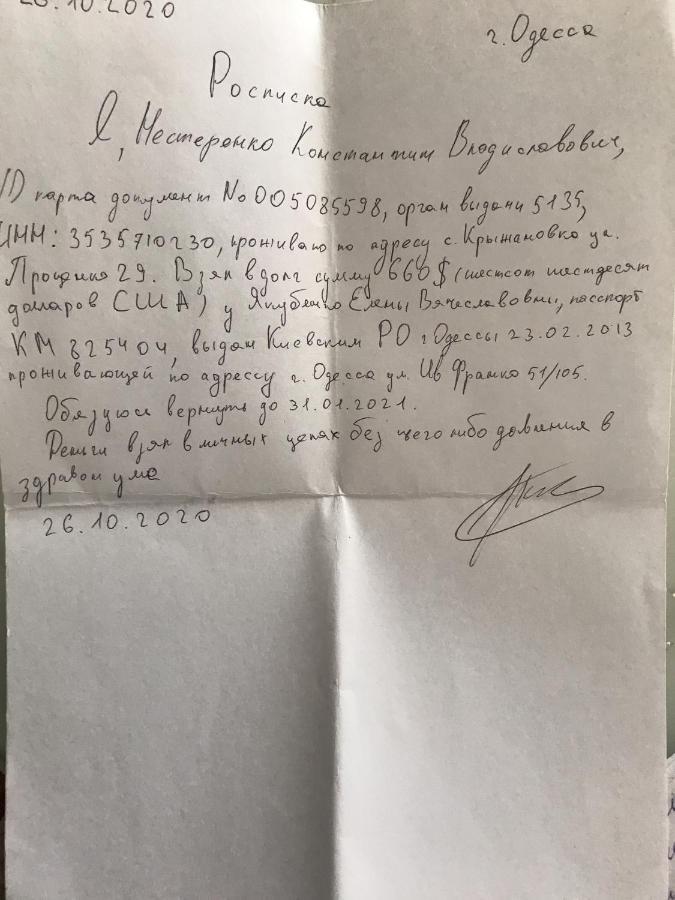 26.10.2020
г. Одесса
Росписка
Я, Нестеренко Константин Владиславович,
ID карта документ No 005085598, орган выдачи 5135,
ИНН: 3535710230, проживаю по адресу с. Крыжановка ул.
Проценко 29. Взял в долг сумму 660$ (шестсот шестдесят
доларов США) у Якубенко Елены Вячеславовны, пасспорт
КМ 825404, выдан Киевским РО г Одессы 23.02.2013
проживающей по адрессу г. Одесса ул. Ив Франко 51/105.
Обязуюсь вернуть до 31.01.2021.
Деньги взял в личных целях без чего либо давления в
здравом уме
26.10.2020